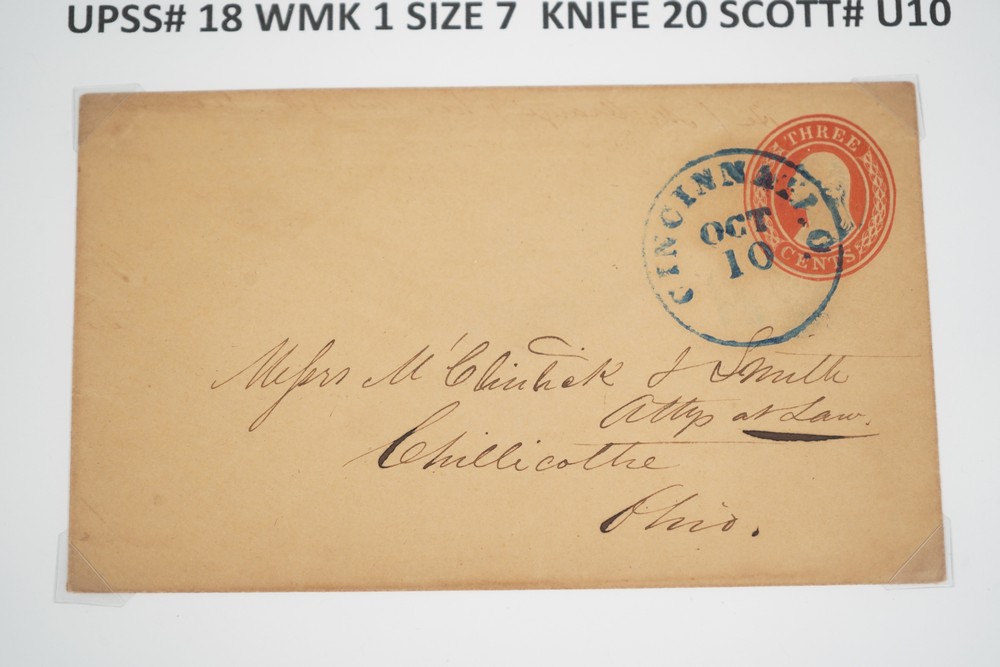 UPSS# 18 WMK 1 SIZE 7 KNIFE 20 SCOTT# U10
THREE
CENTS
CINCINNATI. O.
OCT
10
Messrs McClintick & Smith
Attys at Law.
Chillicothe
Ohio.